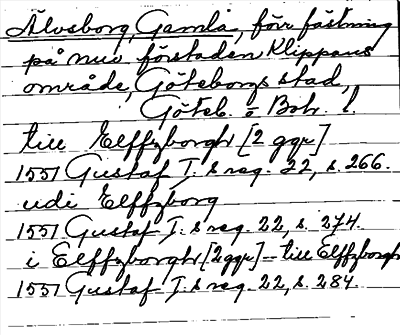 Älvsborg, Gamla, förr fästning
på nuv. förstaden Klippans
område, Göteborgs stad,
Göteb. o Boh. l.
till Elffzborgh [2 ggr]
1551 Gustaf I:s reg. 22, s. 266.
udi Elffzborg
1551 Gustaf I:s reg. 22, s. 274.
i Elffzborgh [2 ggr] - till Elffzborgh
1551 Gustaf I:s reg. 22, s. 284.